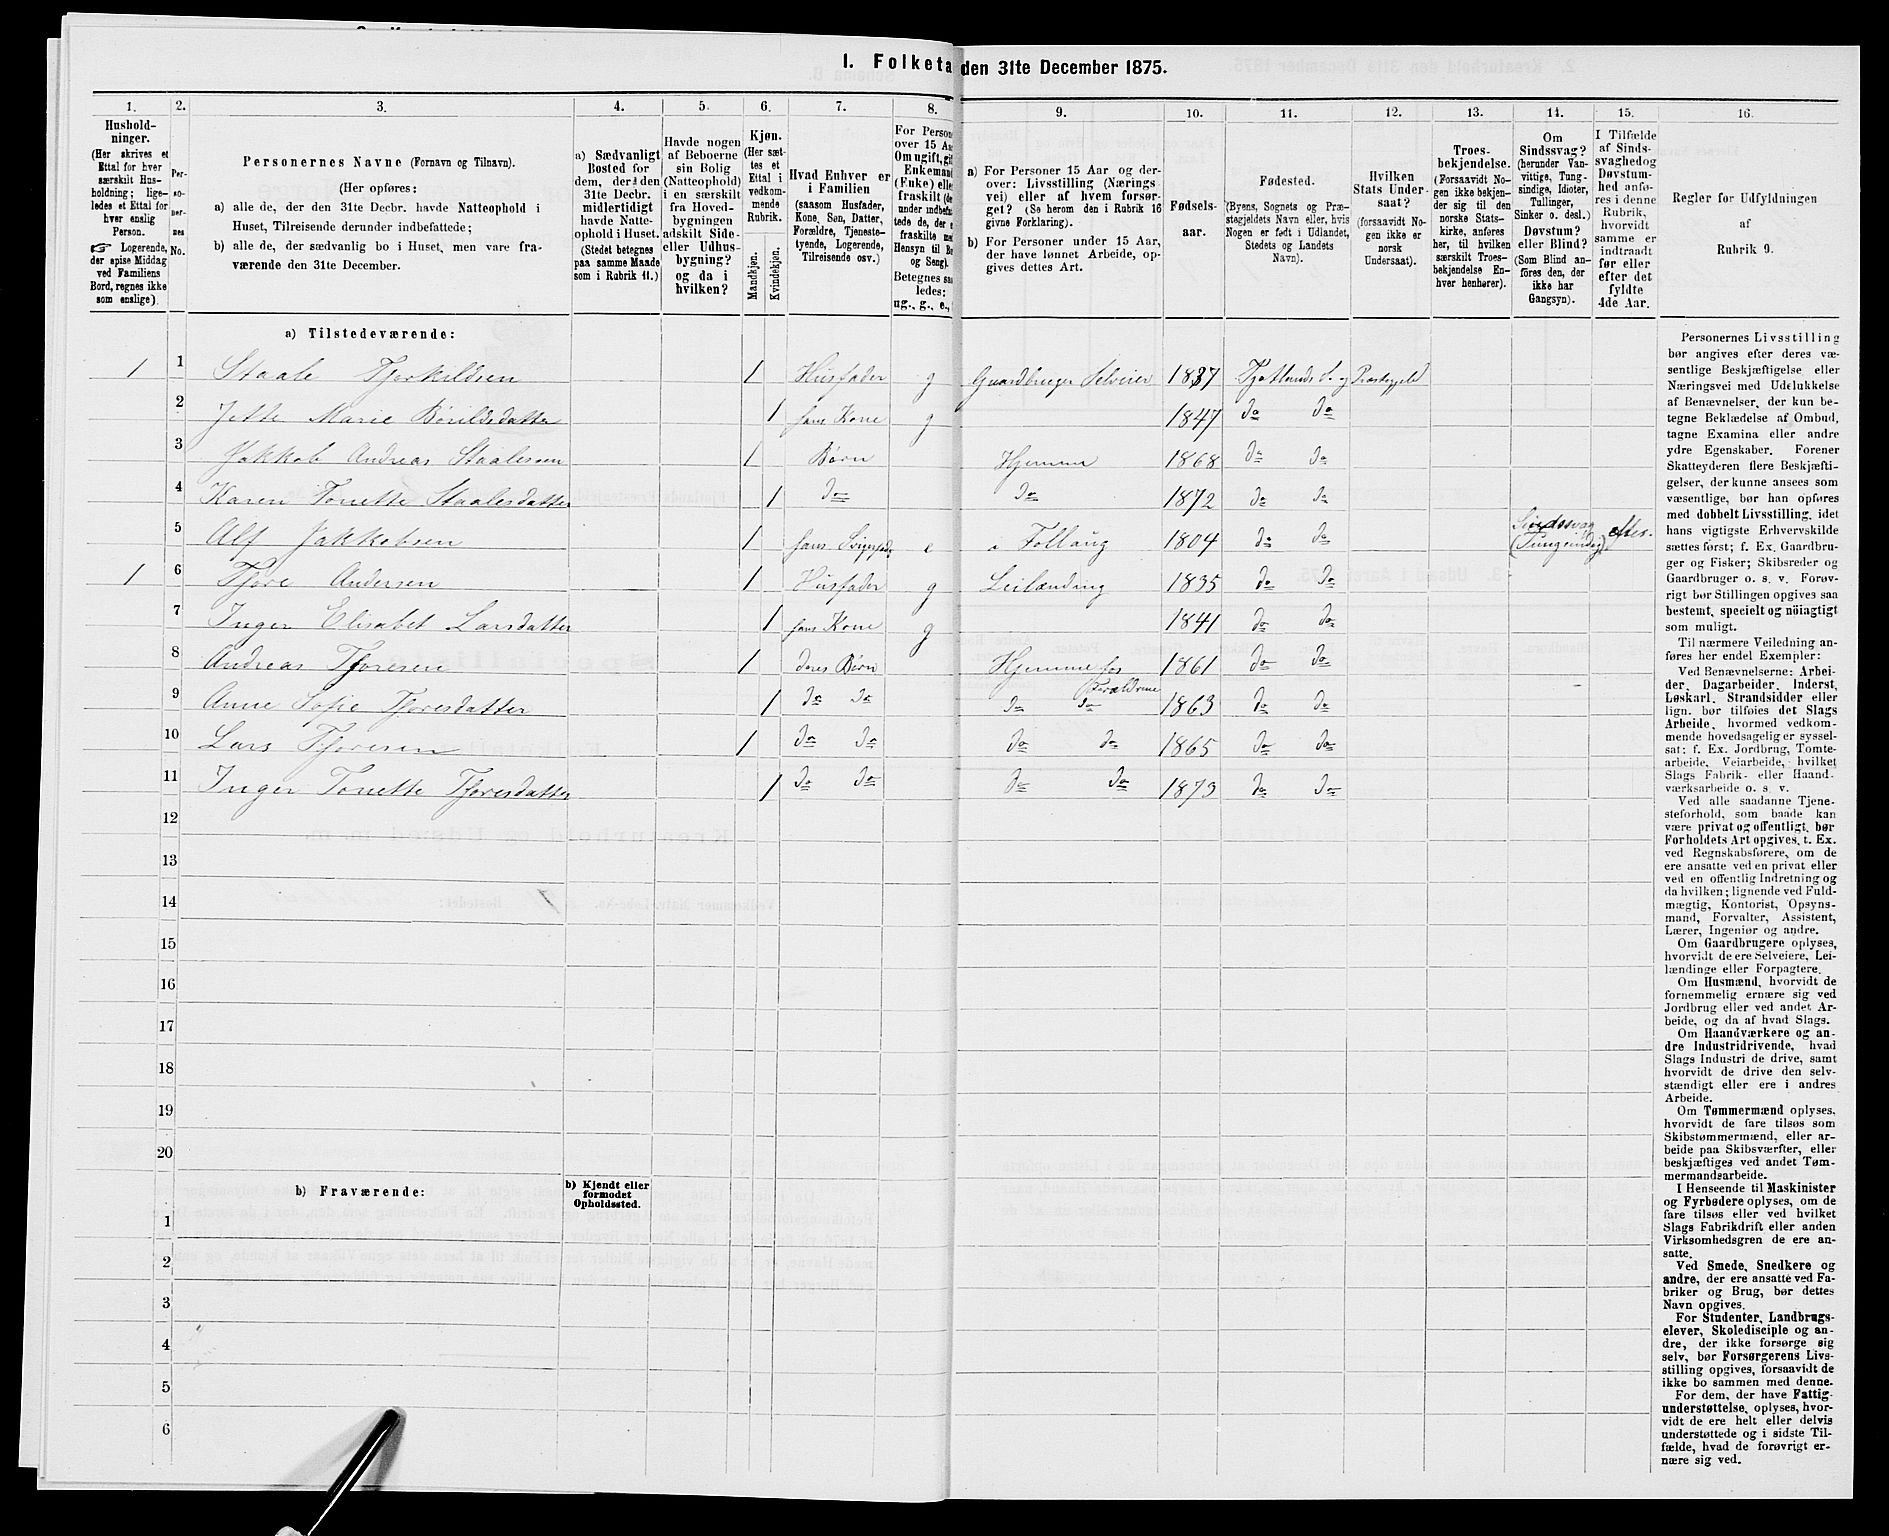 I. Folketa den 31te December 1875.
1. 2. 3. 4. 5. 6. 7. 8. 9. 10. 11. 12. 13. 14. 15. 16.
Hushold-
ninger.
(Her skrives et
Ettal for hver
særskilt Hus-
holdning; lige-
ledes et Ettal for
hver enslig
Person.
☞ Logerende,
der spise Middag
ved Familiens
Bord, regnes ikke
som enslige).
Per-
so-
ner-
nes
No.
Personernes Navne (Fornavn og Tilnavn).
(Her opføres:
a) alle de, der den 31te Decbr. havde Natteophold i
Huset, Tilreisende derunder indbefattede;
b) alle de, der sædvanlig bo i Huset, men vare fra-
værende den 31te December.
a) Sædvanligt
Bosted for
dem, der den
31te Decbr.
midlertidigt
havde Natte-
ophold i Huset.
(Stedet betegnes
paa samme Maade
som i Rubrik 11.)
Havde nogen
af Beboerne
sin Bolig
(Natteophold)
i en særskilt
fra Hoved-
bygningen
adskilt Side-
eller Udhus-
bygning?
og da i
hvilken?
Kjøn.
(Her sæt-
tes et
Ettal i
vedkom-
mende
Rubrik.
Mandkjøn.
Kvindekjøn.
Hvad Enhver er
i Familien
(saasom Husfader,
Kone, Søn, Datter,
Forældre, Tjeneste-
tyende, Logerende,
Tilreisende osv.)
For Person
over 15 Aa
Om ugift, gif
Enkemand
(Enke) elle
fraskilt (de
under indbefat-
tede de, der e
fraskilte me
Hensyn til Bo
og Seng).
Betegnes saa
ledes:
ug., g., e.,
a) For Personer 15 Aar og der-
over: Livsstilling (Nærings-
vei) eller af hvem forsør-
get? (Se herom den i Rubrik 16
givne Forklaring).
b) For Personer under 15 Aar,
der have lønnet Arbeide, op-
gives dettes Art.
Fødsels-
aar.
Fødested.
(Byens, Sognets og Præ-
stegjeldets Navn eller, hvis
Nogen er født i Udlandet,
Stedets og Landets
Navn).
Hvilken
Stats Under-
saat?
(forsaavidt No-
gen ikke er
norsk
Undersaat).
Troes-
bekjendelse.
(Forsaavidt No-
gen ikke bekjen-
der sig til den
norske Stats-
kirke, anføres
her, til hvilken
særskilt Troes-
bekjendelse En-
hver henhører).
Om
Sindssvag?
(herunder Van-
vittige, Tung-
sindige, Idioter,
Tullinger,
Sinker o. desl.)
Døvstum?
eller Blind?
(Som Blind an-
føres den, der
ikke har
Gangsyn).
I Tilfælde
af Sinds-
svaghedog
Døvstum-
hed anfø-
res i denne
Rubrik,
hvorvidt
samme er
indtraadt
før eller
efter det
fyldte
4de Aar.
Regler for Udfyldningen
af
Rubrik 9.
a) Tilstedeværende:
1 1 Staale Tjorkildsen 1 Husfader g Gaardbruger Selveier 1837 Fjotlands S. og Præstegjeld
2 Jette Marie Børildsdatter 1 hans Kone g 1847 do do
3 Jakkob Andreas Staalesen 1 Børn Hjemme 1868 do do
4 Karen Tonette Staalesdatter 1 do do 1872 do do
5 Alf Jakkobsen 1 hans Svigerfader e a Follaug 1804 do do Sindssvag (Tungsindig) efter.
1 6 Tjøre Andersen 1 Husfader g Leilænding 1835 do do
7 Inger Elisabet Larsdatter 1 hans Kone g 1841 do do
8 Andreas Tjøresen 1 deres Børn Hjemme hos Forældrene 1861 do do
9 Anne Sofie Tjøresdatter 1 do do do do 1863 do do
10 Lars Tjøresen 1 do do do do 1865 do do
11 Inger Tonette Tjøresdatter 1 do do do do 1873 do do
12
13
14
15
16
17
18
19
20
b) Fraværende:
b) Kjendt eller
formodet
Opholdssted.
1
2
3
4
5
6
Personernes Livsstilling
bør angives efter deres væ-
sentlige Beskjæftigelse eller
Næringsvei med Udelukkelse
af Benævnelser, der kun be-
tegne Beklædelse af Ombud,
tagne Examina eller andre
ydre Egenskaber. Forener
Skatteyderen flere Beskjæfti-
gelser, der kunne ansees som
væsentlige, bør han opføres
med dobbelt Livsstilling, idet
hans vigtigste Erhvervskilde
sættes først; f. Ex. Gaardbru-
ger og Fisker; Skibsreder og
Gaardbruger o. s. v. Forøv-
rigt bør Stillingen opgives saa
bestemt, specielt og nöiagtigt
som muligt.
Til nærmere Veiledning an-
føres her endel Exempler:
Ved Benævnelserne: Arbei-
der, Dagarbeider, Inderst,
Løskarl, Strandsidder eller
lign. bør tilføies det Slags
Arbeide, hvormed vedkom-
mende hovedsagelig er syssel-
sat; f. Ex. Jordbrug, Tomte-
arbeide, Veiarbeide, hvilket
Slags Fabrik- eller Haand-
værksarbeide o. s. v.
Ved alle saadanne Tjene-
steforhold, som baade kan
være privat og offentligt, bør
Forholdets Art opgives, t. Ex.
ved Regnskabsførere, om de
ere ansatte ved en privat eller
ved en offentlig Indretning og
da hvilken; lignende ved Fuld-
mægtig, Kontorist, Opsyns-
mand, Forvalter, Assistent,
Lærer, Ingeniør og andre.
Om Gaardbrugere oplyses,
hvorvidt de ere Selveiere, Lei-
lændinge eller Forpagtere.
Om Husmænd, hvorvidt de
fornemmelig ernære sig ved
Jordbrug eller ved andet Ar-
beide, og da af hvad Slags.
Om Haandværkere og an-
dre Industridrivende, hvad
Slags Industri de drive, samt
hvorvidt de drive den selv-
stændigt eller ere i andres
Arbeide.
Om Tømmermænd oplyses,
hvorvidt de fare tilsøs som
Skibstømmermænd, eller ar-
beide paa Skibsværfter, eller
beskjæftiges ved andet Tøm-
mermandsarbeide.
I Henseende til Maskinister
og Fyrbødere oplyses, om de
fare tilsøs eller ved hvilket
Slags Fabrikdrift eller anden
Virksomhedsgren de ere an-
satte.
Ved Smede, Snedkere og
andre, der ere ansatte ved Fa-
briker og Brug, bør dettes
Navn opgives.
For Studenter, Landbrugs-
elever, Skoledisciple og an-
dre, der ikke forsørge sig
selv, bør Forsørgerens Livs-
stilling opgives, forsaavidt de
ikke bo sammen med denne.
For dem, der have Fattig-
understøttelse, oplyses, hvor-
vidt de ere helt eller delvis
understøttede og i sidste Til-
fælde, hvad de forøvrigt er-
nære sig ved.